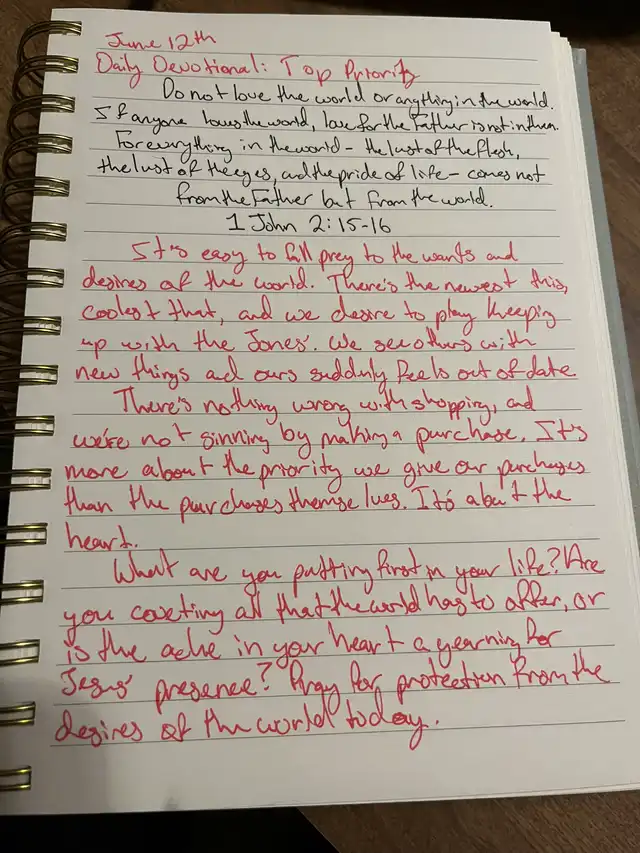 June 12th
Daily Devotional: Top Priority
Do not love the world or anything in the world.
If anyone loves the world, love for the Father is not in them.
For everything in the world - the lust of the flesh,
the lust of the eyes, and the pride of life - comes not
from the Father but from the world.
1 John 2:15-16
It's easy to fall prey to the wants and
desires of the world. There's the newest this,
coolest that, and we desire to play keeping
up with the Jones'. We see others with
new things and ours suddenly feels out of date
There's nothing wrong with shopping, and
we're not sinning by making a purchase. It's
more about the priority we give our purchases
than the purchases themselves. It's about the
heart.
What are you putting first in your life? Are
you coveting all that the world has to offer, or
is the ache in your heart a yearning for
Jesus' presence? Pray for protection from the
desires of the world today.